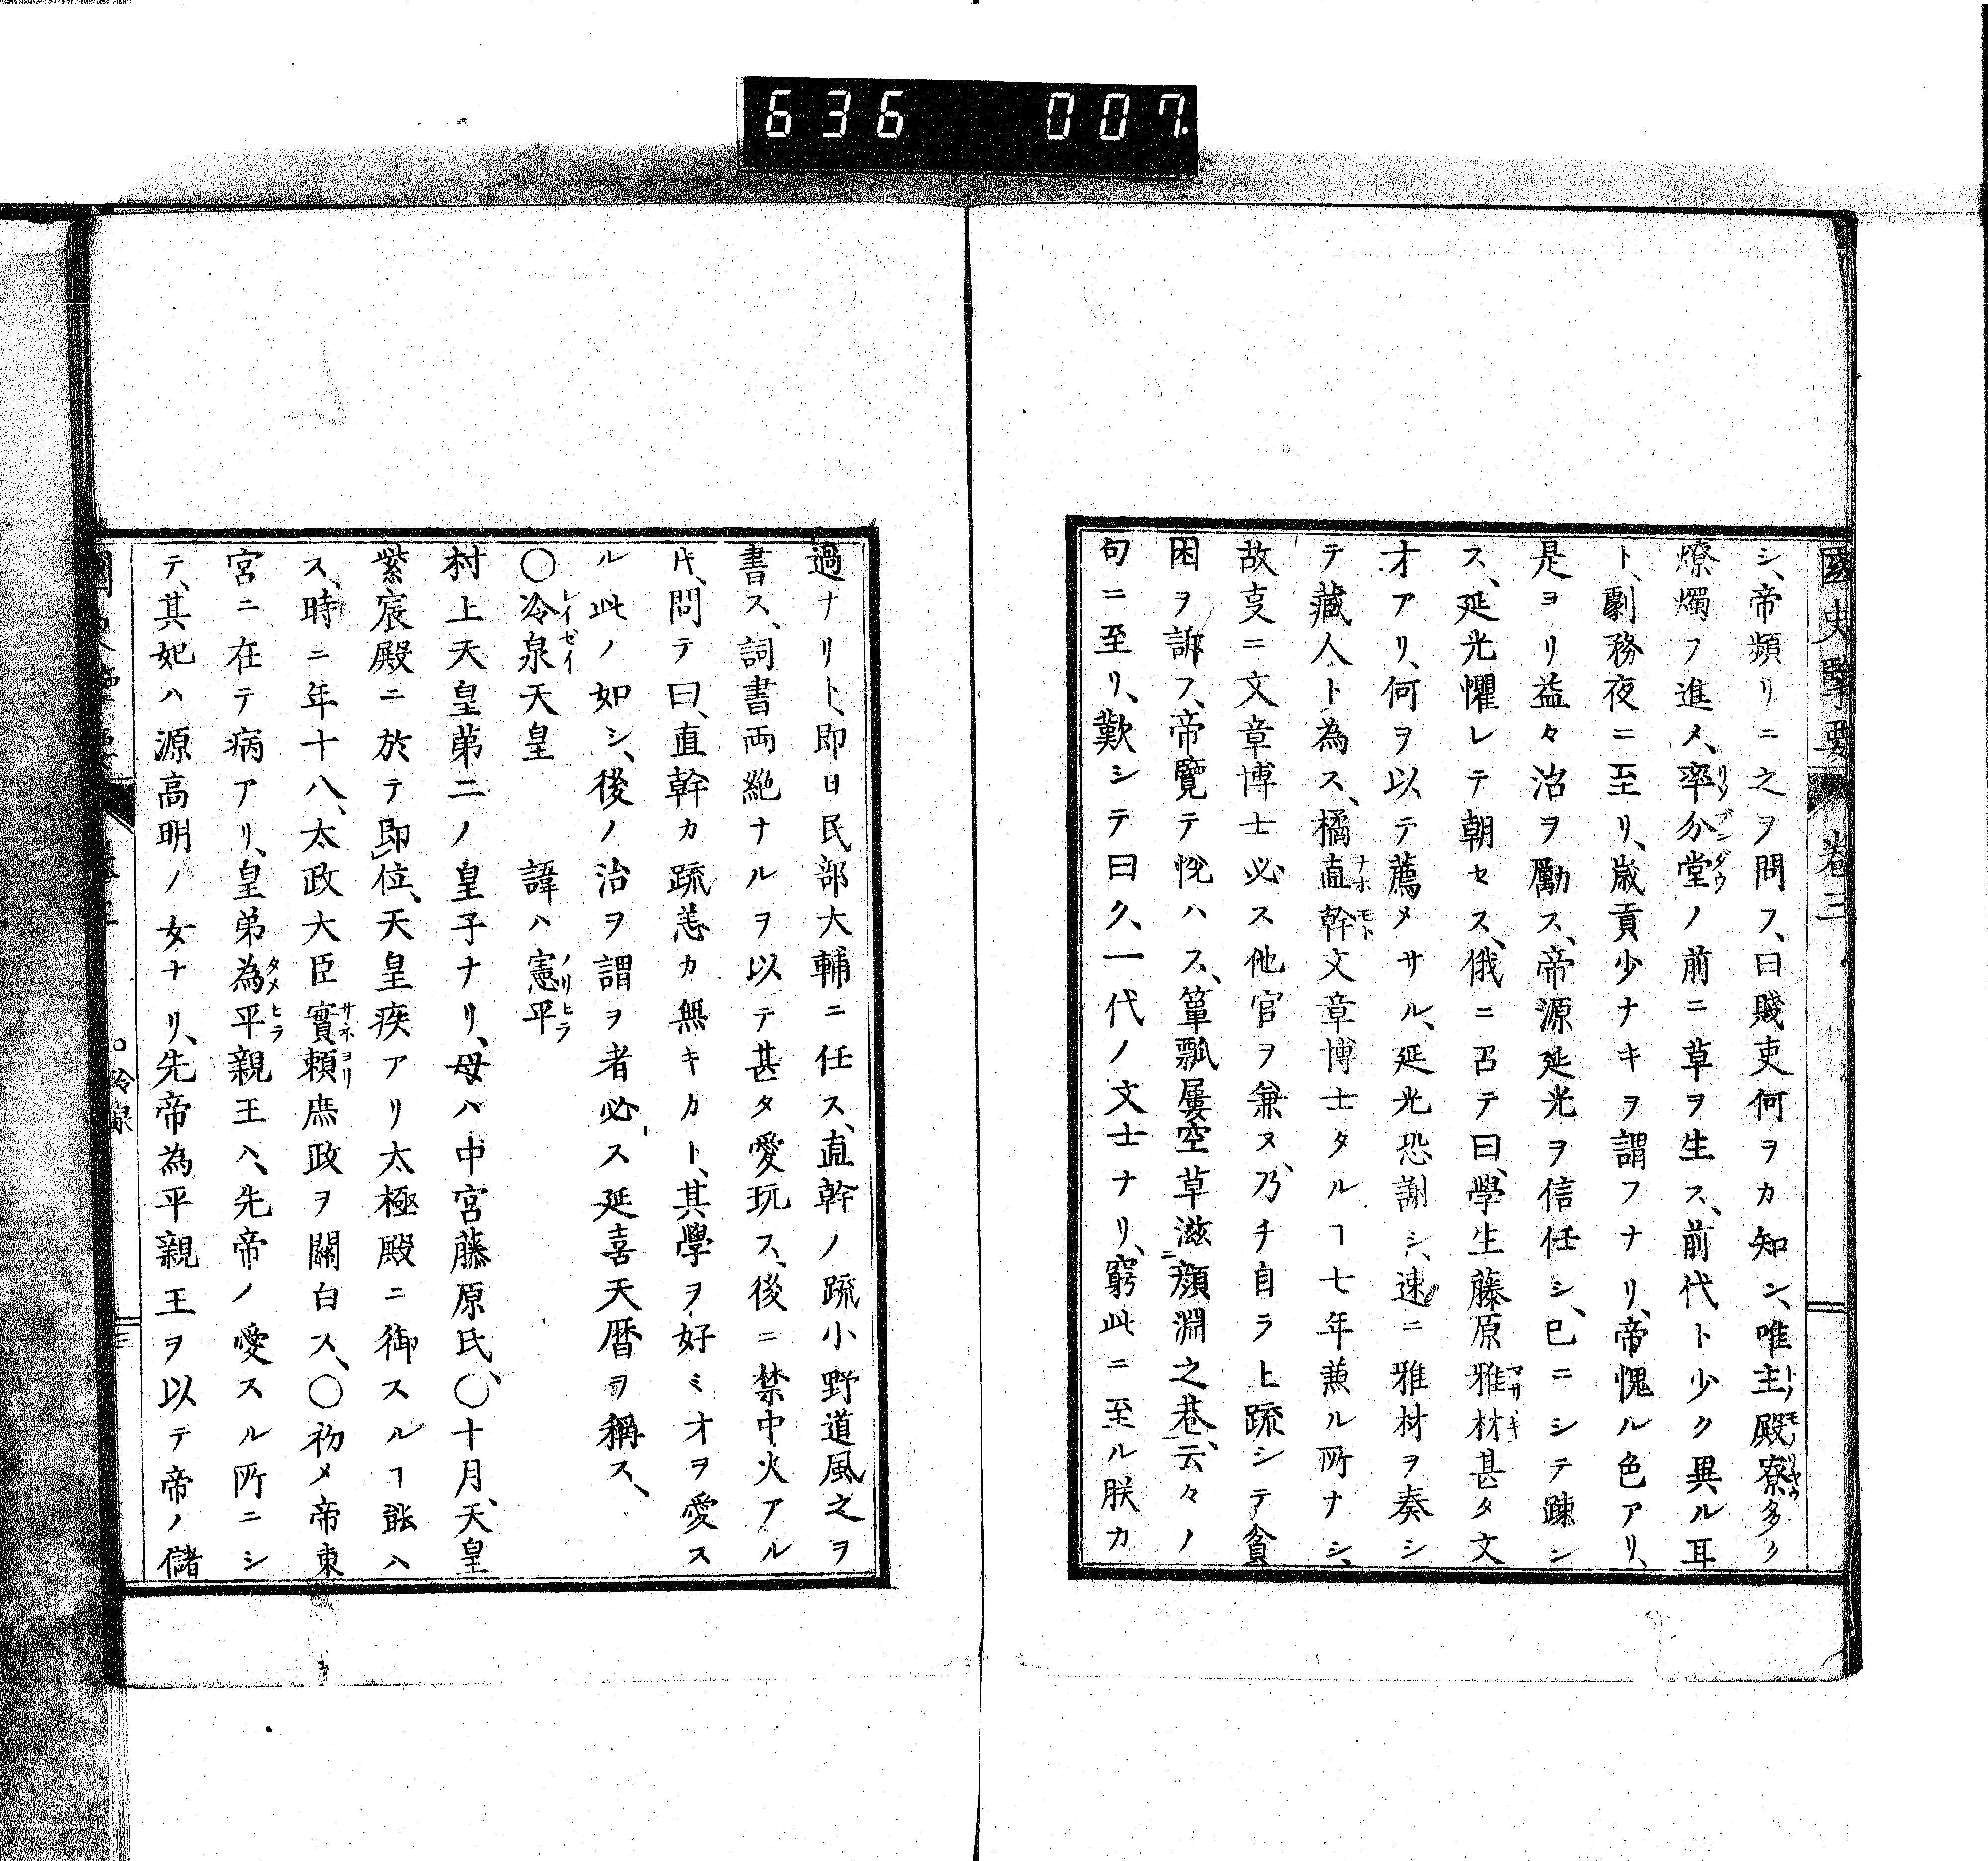 636 007.
國史擥要 卷三
シ、帝頻リニ之ヲ問フ、曰賤吏何ヲカ知ン、唯主殿寮多ク
燎燭フ進メ、率分堂ノ前ニ草ヲ生ス、前代ト少ク異ル耳
ト、劇務夜ニ至リ、歲貢少ナキヲ謂フナリ、帝愧ル色アリ、
是ヨリ益々治ヲ勵ス、帝源延光ヲ信任シ、已ニシテ踈ン
ス、延光懼レテ朝セス、俄ニ召テ曰、學生藤原雅材甚タ文
才アリ、何ヲ以テ薦メサル、延光恐謝シ、速ニ雅材ヲ奏シ
テ藏人ト為ス、橘直幹文章博士タルヿ七年兼ル所ナシ、
故支ニ文章博士必ス他官ヲ兼ヌ、乃チ自ラ上疏シテ貧
困ヲ訴フ、帝覽テ悅ハス、簞瓢屢空草滋顏淵之巷、云々ノ
句ニ至リ、歎シテ曰久、一代ノ文士ナリ、窮此ニ至ル朕カ
過ナリト、即日民部大輔ニ任ス、直幹ノ疏小野道風之ヲ
書ス、詞書両絶ナルヲ以テ甚タ愛玩ス、後ニ禁中火アル
片、問テ曰、直幹カ疏恙カ無キカト、其學ヲ好ミオヲ愛ス
ル此ノ如シ、後ノ治ヲ謂ヲ者必ス延喜天曆ヲ稱ス、
〇冷泉天皇 諱ハ憲平
村上天皇第二ノ皇子ナリ、母ハ中宮藤原氏、〇十月、天皇
紫宸殿ニ於テ即位、天皇疾アリ太極殿ニ御スルヿ能ハ
ス、時ニ年十八、太政大臣實頼庶政ヲ關白ス、〇初メ帝東
宮ニ在テ病アリ、皇弟為平親王ハ、先帝ノ愛スル所ニシ
テ、其妃ハ源高明ノ女ナリ、先帝為平親王ヲ以テ帝ノ儲
冷泉
三